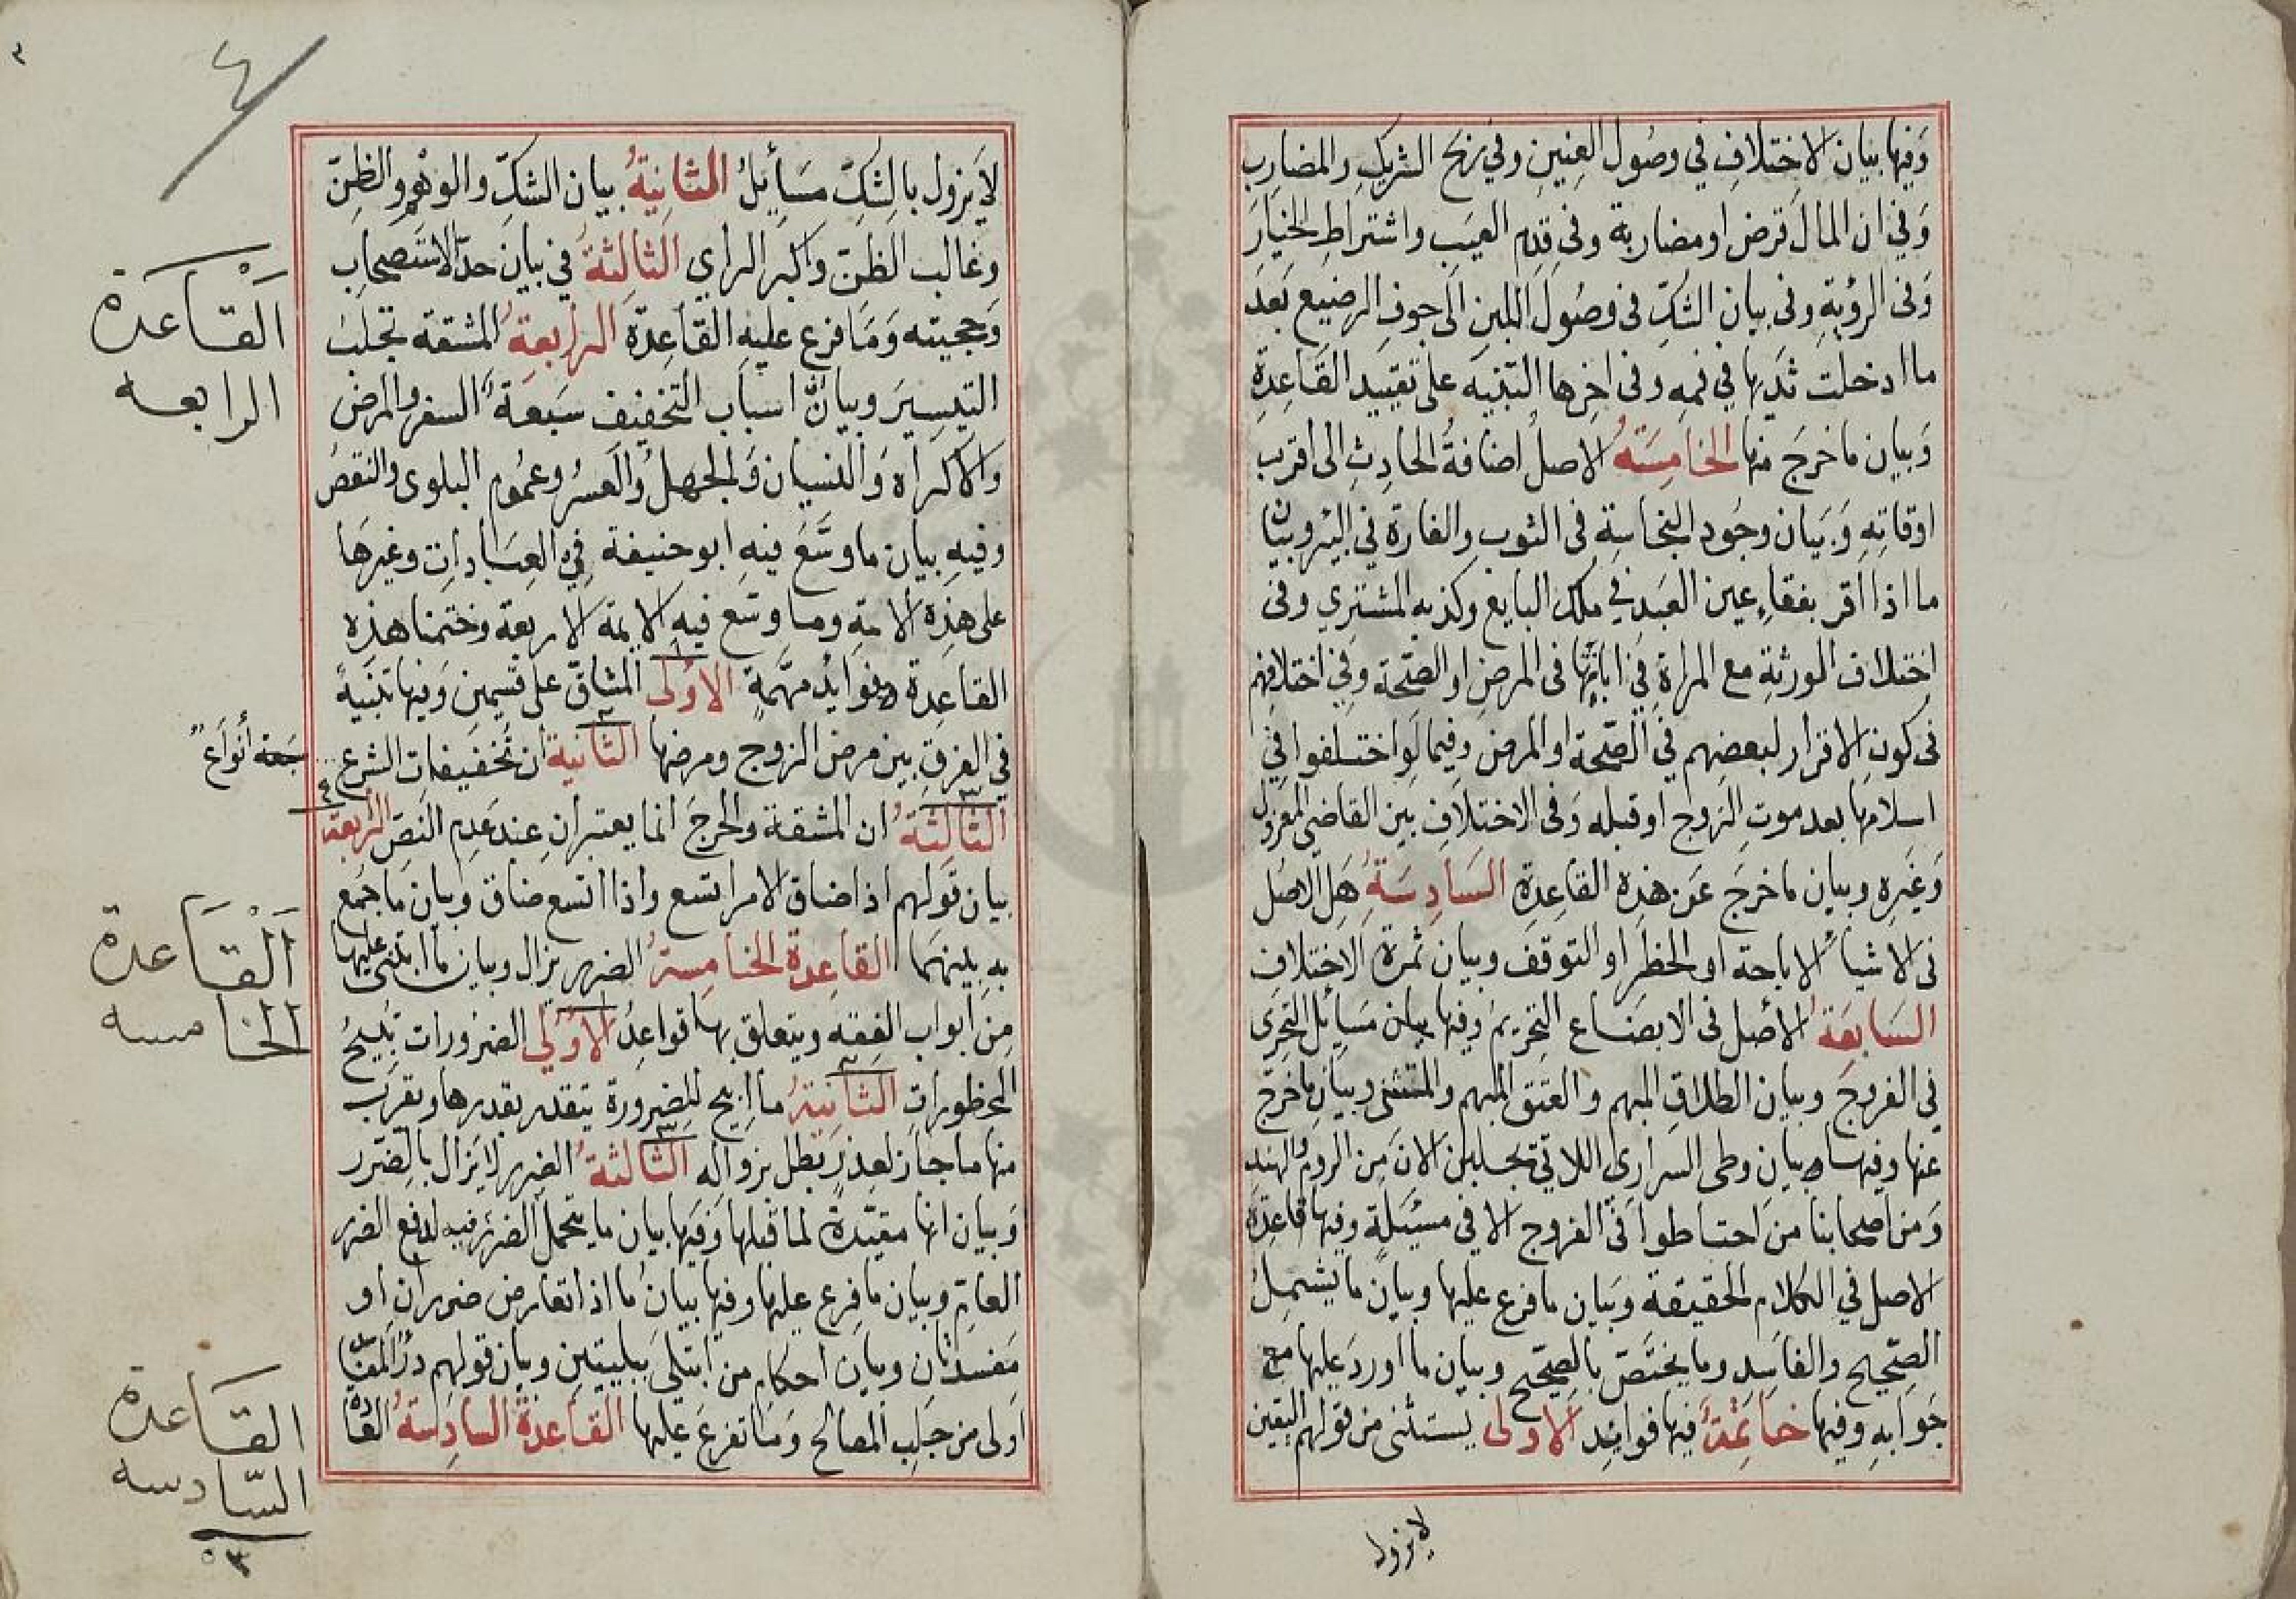 وفيها بيان الاختلاف في وصول العنين وفي ربح الشريك والمضارب
وفي ان المال قرض او مضاربة وفي قدم العيب واشتراط الخيار
وفى الرؤية وفى بيان الشك فى وصول اللبن الى جوف الرضيع بعد
ما ادخلت ثديها في فمه وفى اخرها التنبيه على تقييد القاعدة
وبيان ما خرج منها الخامسة الاصل اضافة الحادث الى اقرب
اوقاته وبيان وجود النجاسة فى الثوب والفارة في البئر وبيان
ما اذا اقر بفقاء عين العبد في ملك البايع وكذبه المشتري وفى
اختلاف الورثة مع المراة في ابانتها فى المرض او الصحة وفي اختلافهم
فى كون الاقرار لبعضهم في الصحة او المرض وفيما لو اختلفوا في
اسلامها بعد موت الزوج او قبله وفى الاختلاف بين القاضى المعزول
وغيره وبيان ما خرج عن هذه القاعدة السادسة هل الاصل
فى الاشيا الاباحة او الحظر او التوقف وبيان ثمرة الاختلاف
السابعة الاصل فى الابضاع التحريم وفيها بيان مسايل التحرى
في الفروج وبيان الطلاق المبهم والعتق المبهم والمتثنى وبيان ما خرج
عنها وفيها بيان وطى السرارى اللاتي تجلبن الان من الروم والهند
ومن اصحابنا من احتاطوا في الفروج الا في مسئلة وفيها قاعدة
الاصل في الكلام الحقيقة وبيان ما فرع عليها وبيان ما يشمل
الصحيح والفاسد وما يختص بالصحيح وبيان ما اورد عليها مع
جوابه وفيها خاتمة فيها فوائد الاولى يستثنى من قولهم اليقين
لا يزول
٣
٤
لا يزول بالشك مسائل الثانية بيان الشك والوهم والظن
وغالب الظن واكبر الراي الثالثة في بيان حد الاستصحاب
وحجيته وما فرع عليه القاعدة الرابعة المشقة تجلب
القاعدة
الرابعه
التيسير وبيان اسباب التخفيف سبعة السفر والمرض
والاكراه والنسيان والجهل والعسر وعموم البلوى والنقص
وفيه بيان ما وسع فيه ابو حنيفة في العبادات وغيرها
على هذه الامة وما وسع فيه الايمة الاربعة وختمنا هذه
القاعدة بفوايد مهمة الاولى المشاق على قسمين وفيها تنبيه
في الفرق بين مرض الزوج ومرضها الثانية ان تخفيفات الشرع
سبعة أنواع
الثالثة ان المشقة والحرج انما يعتبران عند عدم النص الرابعة
بيان قولهم اذا ضاق الامر اتسع واذا اتسع ضاق وبيان ما جمع
به بينهما القاعدة الخامسة الضرر يزال وبيان ما ابتنى عليها
القاعدة
الخامسه
من ابواب الفقه ويتعلق بها قواعد الاولى الضرورات تبيح
المحظورات الثانية ما ابيح للضرورة يتقدر بقدرها ويقرب
منها ما جاز لعذر بطل بزواله الثالثة الضرر لا يزال بالضرر
وبيان انها مقيدة لما قبلها وفيها بيان ما يتحمل الضرر فيه لدفع الضرر
العام وبيان ما فرع عليها وفيها بيان ما اذا تعارض ضرران او
مفسدتان وبيان احكام من ابتلى ببليتين وبيان قولهم درء المفاسد
اولى من جلب المصالح وما تفرع عليها القاعدة السادسة العادة
القاعدة
السادسه